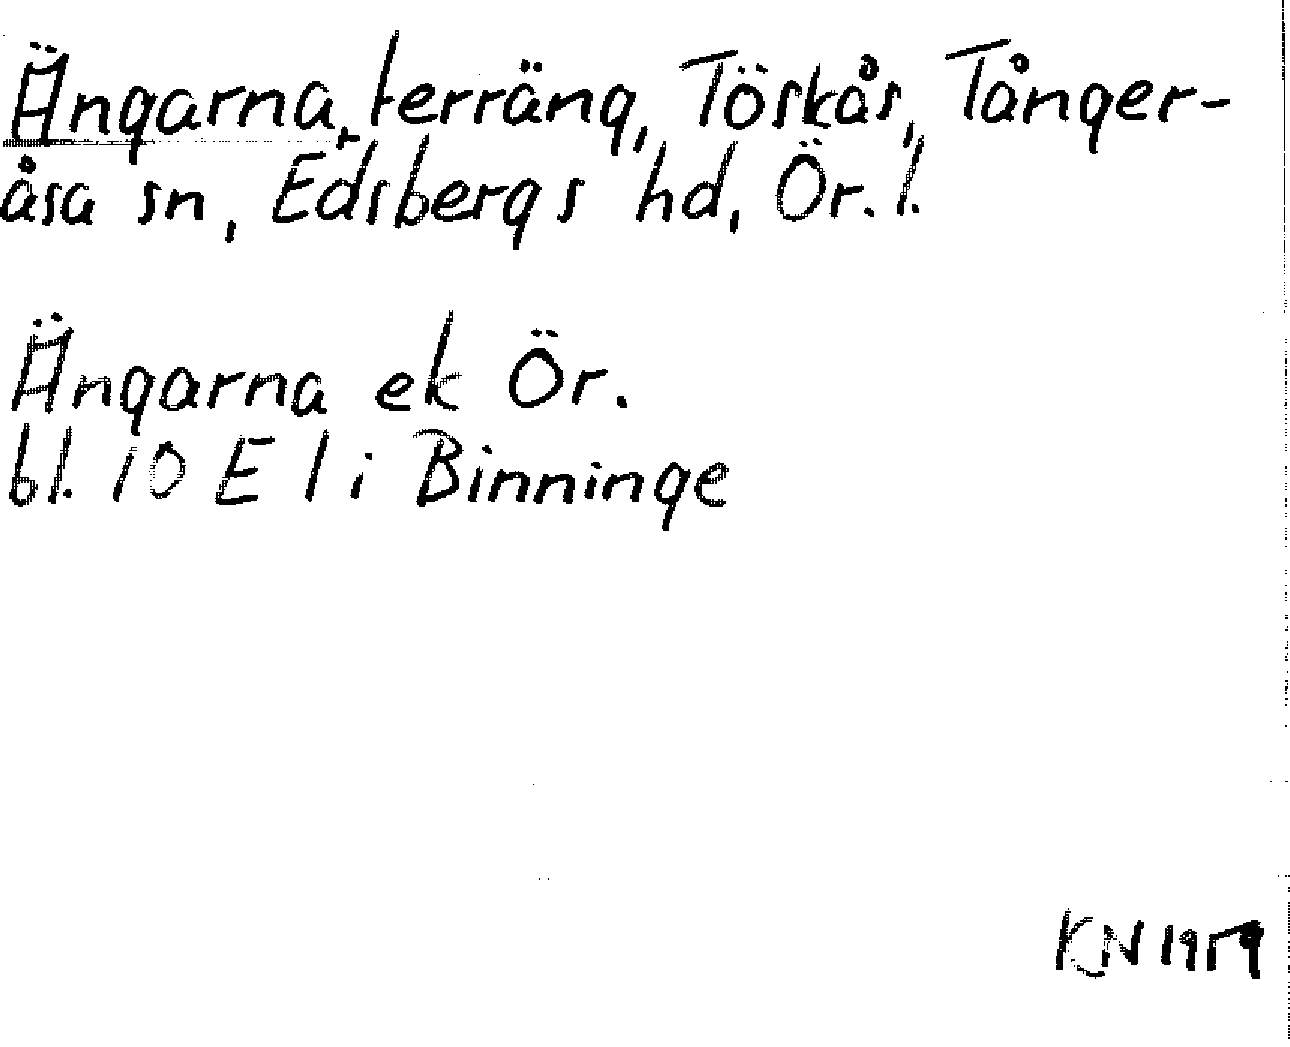 Ängarna, terräng, Töskås, Tånger-
åsa sn, Edsbergs hd, Ör. l.
Ängarna ek Ör.
bl. 10 E 1 i Binninge
KN 1959